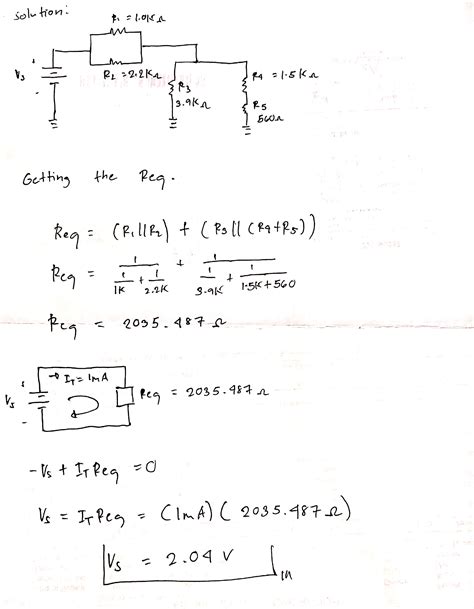 solution:
R₁ = 1.0K Ω
Vs
R₂ = 2.2K Ω
R3
3.9K Ω
R4 = 1.5K Ω
R5
560 Ω
Getting the Req.
Req = (R₁||R₂) + (R3 || (R4+R5))
Req = 1/(1/1K + 1/2.2K) + 1/(1/3.9K + 1/(1.5K+560))
Req = 2035.487 Ω
Vs
→ I_T = 1mA
Req = 2035.487 Ω
-Vs + I_T Req = 0
Vs = I_T Req = (1mA)(2035.487 Ω)
Vs = 2.04 V